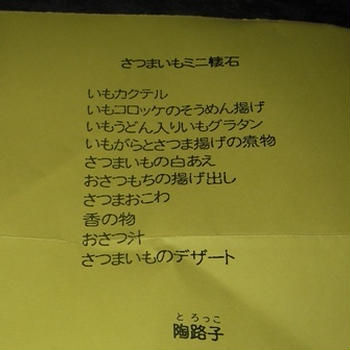 さつまいもミニ懐石
いもカクテル
いもコロッケのそうめん揚げ
いもうどん入りいもグラタン
いもがらとさつま揚げの煮物
さつまいもの白あえ
おさつもちの揚げ出し
さつまおこわ
香の物
おさつ汁
さつまいものデザート
とろっこ
陶路子